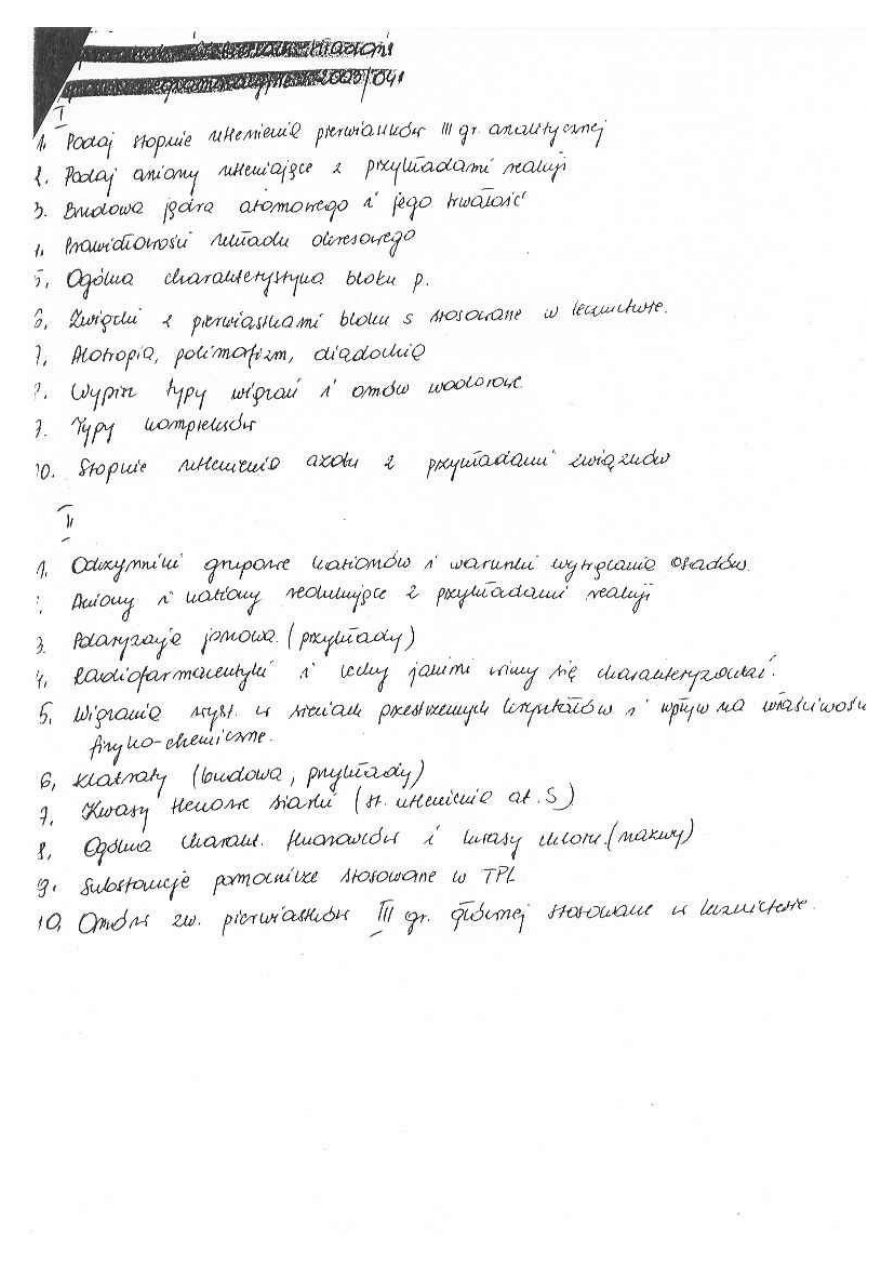 2003/04
I
1. Podaj stopnie utlenienia pierwiastków III gr. analitycznej
2. Podaj aniony utleniające z przykładami reakcji
3. Budowa jądra atomowego i jego trwałość
4. Prawidłowości układu okresowego
5. Ogólna charakterystyka bloku p.
6. Związki z pierwiastkami bloku s stosowane w lecznictwie.
7. Alotropia, polimofizm, diadochia
8. Wypisz typy wiązań i omów wodorowe
9. Typy kompleksów
10. Stopnie utlenienia azotu z przykładami związków
II
1. Odczynniki grupowe kationów i warunki wytrącania osadów.
Aniony i kationy redukujące z przykładami reakcji
3. Polaryzacja jonowa (przykłady)
4. Radiofarmaceutyki i cechy jakimi winny się charakteryzować.
5. Wiązania wyst. w sieciach przestrzennych kryształów i wpływ na właściwości
fizyko-chemiczne.
6. Klatraty (budowa, przykłady)
7. Kwasy tlenowe siarki (st. utlenienia at. S)
8. Ogólna charakt. fluorowców i kwasy chloru. (nazwy)
9. Substancje pomocnicze stosowane w TPL
10. Omów zw. pierwiastków III gr. głównej stosowane w lecznictwie.